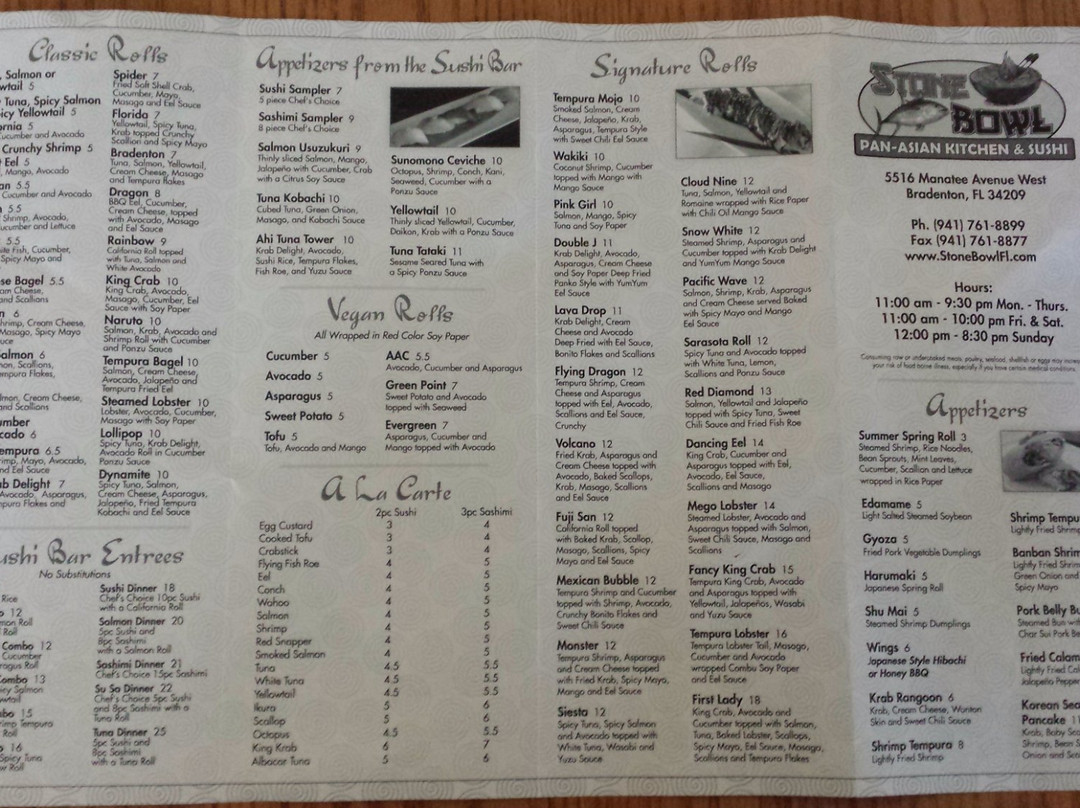 Classic Rolls
, Salmon or
wtail 5
Tuna, Spicy Salmon
icy Yellowtail 5
ornia 5
Cucumber and Avocado
Crunchy Shrimp 5
Eel 5
, Mango, Avocado
an 5.5
Cucumber and Avocado
5.5
Shrimp, Avocado,
ucumber and Lettuce
5.5
ite Fish, Cucumber,
Spicy Mayo and
se Bagel 5.5
am Cheese,
and Scallions
n 6
hrimp, Cream Cheese,
Masago, Spicy Mayo
uce
almon 6
mon, Scallions,
mpura Flakes,
lmon, Cream Cheese,
and Scallions
umber
cado 6
empura 6.5
rimp, Mayo, Avocado,
nd Eel Sauce
ab Delight 7
Avocado, Asparagus,
Flakes and
Spider 7
Fried Soft Shell Crab,
Cucumber, Mayo,
Masago and Eel Sauce
Florida 7
Yellowtail, Spicy Tuna,
Krab topped Crunchy
Scallion and Spicy Mayo
Bradenton 7
Tuna, Salmon, Yellowtail,
Cream Cheese, Masago
and Tempura flakes
Dragon 8
BBQ Eel, Cucumber,
Cream Cheese, topped
with Avocado, Masago
and Eel Sauce
Rainbow 9
California Roll topped
with Tuna, Salmon and
White Avocado
King Crab 10
King Crab, Avocado,
Masago, Cucumber, Eel
Sauce with Soy Paper
Naruto 10
Salmon, Krab, Avocado and
Shrimp Roll with Cucumber
and Ponzu Sauce
Tempura Bagel 10
Salmon, Cream Cheese,
Avocado, Jalapeño and
Tempura Fried Eel
Steamed Lobster 10
Lobster, Avocado, Cucumber,
Masago with Soy Paper
Lollipop 10
Spicy Tuna, Krab Delight,
Avocado Roll in Cucumber
Ponzu Sauce
Dynamite 10
Spicy Tuna, Salmon,
Cream Cheese, Asparagus,
Jalapeño, Fried Tempura
Kabachi and Eel Sauce
ushi Bar Entrees
No Substitutions
Rice
o 12
mon Roll
Roll
Combo 12
Cucumber
ragus Roll
ombo 13
icy Salmon
wtail
bo 15
rimp Tempura
Roll
o 16
Spicy Tuna
w Roll
Sushi Dinner 18
Chef's Choice 10pc Sushi
with a California Roll
Salmon Dinner 20
5pc Sushi and
8pc Sashimi
with a Salmon Roll
Sashimi Dinner 21
Chef's Choice 15pc Sashimi
Su Sa Dinner 22
Chef's Choice 5pc Sushi
and 8pc Sashimi with a
Tuna Roll
Tuna Dinner 25
5pc Sushi and
8pc Sashimi
with a Tuna Roll
Appetizers from the Sushi Bar
Sushi Sampler 7
5 piece Chef's Choice
Sashimi Sampler 9
8 piece Chef's Choice
Salmon Usuzukuri 9
Thinly sliced Salmon, Mango,
Jalapeño with Cucumber, Crab
with a Citrus Soy Sauce
Tuna Kobachi 10
Cubed Tuna, Green Onion,
Masago, and Kobachi Sauce
Ahi Tuna Tower 10
Krab Delight, Avocado,
Sushi Rice, Tempura Flakes,
Fish Roe, and Yuzu Sauce
Sunomono Ceviche 10
Octopus, Shrimp, Conch, Kani,
Seaweed, Cucumber with a
Ponzu Sauce
Yellowtail 10
Thinly sliced Yellowtail, Cucumber,
Daikon, Krab with a Ponzu Sauce
Tuna Tataki 11
Sesame Seared Tuna with
a Spicy Ponzu Sauce
Vegan Rolls
All Wrapped in Red Color Soy Paper
Cucumber 5
Avocado 5
Asparagus 5
Sweet Potato 5
Tofu 5
Tofu, Avocado and Mango
AAC 5.5
Avocado, Cucumber and Asparagus
Green Point 7
Sweet Potato and Avocado
topped with Seaweed
Evergreen 7
Asparagus, Cucumber and
Mango topped with Avocado
A La Carte
2pc Sushi 3pc Sashimi
Egg Custard 3 4
Cooked Tofu 3 4
Crabstick 3 4
Flying Fish Roe 4 5
Eel 4 5
Conch 4 5
Wahoo 4 5
Salmon 4 5
Shrimp 4 5
Red Snapper 4 5
Smoked Salmon 4 5
Tuna 4.5 5.5
White Tuna 4.5 5.5
Yellowtail 4.5 5.5
Ikura 5 6
Scallop 5 6
Octopus 4.5 5.5
King Krab 6 7
Albacor Tuna 5 6
Signature Rolls
Tempura Mojo 10
Smoked Salmon, Cream
Cheese, Jalapeño, Krab,
Asparagus, Tempura Style
with Sweet Chili Eel Sauce
Wakiki 10
Coconut Shrimp, Cucumber
topped with Mango with
Mango Sauce
Pink Girl 10
Salmon, Mango, Spicy
Tuna and Soy Paper
Double J 11
Krab Delight, Avocado,
Asparagus, Cream Cheese
and Soy Paper Deep Fried
Panko Style with YumYum
Eel Sauce
Lava Drop 11
Krab Delight, Cream
Cheese and Avocado
Deep Fried with Eel Sauce,
Bonito Flakes and Scallions
Flying Dragon 12
Tempura Shrimp, Cream
Cheese and Asparagus
topped with Eel, Avocado,
Scallions and Eel Sauce,
Crunchy
Volcano 12
Fried Krab, Asparagus and
Cream Cheese topped with
Avocado, Baked Scallops,
Krab, Masago, Scallions
and Eel Sauce
Fuji San 12
California Roll topped
with Baked Krab, Scallop,
Masago, Scallions, Spicy
Mayo and Eel Sauce
Mexican Bubble 12
Tempura Shrimp and Cucumber
topped with Shrimp, Avocado,
Crunchy Bonito Flakes and
Sweet Chili Sauce
Monster 12
Tempura Shrimp, Asparagus
and Cream Cheese topped
with Fried Krab, Spicy Mayo,
Mango and Eel Sauce
Siesta 12
Spicy Tuna, Spicy Salmon
and Avocado topped with
White Tuna, Wasabi and
Yuzu Sauce
Cloud Nine 12
Tuna, Salmon, Yellowtail and
Romaine wrapped with Rice Paper
with Chili Oil Mango Sauce
Snow White 12
Steamed Shrimp, Asparagus and
Cucumber topped with Krab Delight
and YumYum Mango Sauce
Pacific Wave 12
Salmon, Shrimp, Krab, Asparagus
and Cream Cheese served Baked
with Spicy Mayo and Mango
Eel Sauce
Sarasota Roll 12
Spicy Tuna and Avocado topped
with White Tuna, Lemon,
Scallions and Ponzu Sauce
Red Diamond 13
Salmon, Yellowtail and Jalapeño
topped with Spicy Tuna, Sweet
Chili Sauce and Fried Fish Roe
Dancing Eel 14
King Crab, Cucumber and
Asparagus topped with Eel,
Avocado, Eel Sauce,
Scallions and Masago
Mego Lobster 14
Steamed Lobster, Avocado and
Asparagus topped with Salmon,
Sweet Chili Sauce, Masago and
Scallions
Fancy King Crab 15
Tempura King Crab, Avocado
and Asparagus topped with
Yellowtail, Jalapeños, Wasabi
and Yuzu Sauce
Tempura Lobster 16
Tempura Lobster Tail, Masago,
Cucumber and Avocado
wrapped Combu Soy Paper
and Eel Sauce
First Lady 18
King Crab, Avocado and
Cucumber topped with Salmon,
Tuna, Baked Lobster, Scallops,
Spicy Mayo, Eel Sauce, Masago,
Scallions and Tempura Flakes
STONE
BOWL
PAN-ASIAN KITCHEN & SUSHI
5516 Manatee Avenue West
Bradenton, FL 34209
Ph. (941) 761-8899
Fax (941) 761-8877
www.StoneBowlFl.com
Hours:
11:00 am - 9:30 pm Mon. - Thurs.
11:00 am - 10:00 pm Fri. & Sat.
12:00 pm - 8:30 pm Sunday
Consuming raw or undercooked meats, poultry, seafood, shellfish or eggs may increa
your risk of food borne illness, especially if you have certain medical conditions.
Appetizers
Summer Spring Roll 3
Steamed Shrimp, Rice Noodles,
Bean Sprouts, Mint Leaves,
Cucumber, Scallion and Lettuce
wrapped in Rice Paper
Edamame 5
Light Salted Steamed Soybean
Gyoza 5
Fried Pork Vegetable Dumplings
Harumaki 5
Japanese Spring Roll
Shu Mai 5
Steamed Shrimp Dumplings
Wings 6
Japanese Style Hibachi
or Honey BBQ
Krab Rangoon 6
Krab, Cream Cheese, Wonton
Skin and Sweet Chili Sauce
Shrimp Tempura 8
Lightly Fried Shrimp
Shrimp Tempu
Lightly Fried Shrim
Banban Shrim
Lightly Fried Shrim
Green Onion and
Spicy Mayo
Pork Belly Bu
Steamed Bun with
Char Sui Pork Be
Fried Calam
Lightly Fried Cal
Jalapeño Pepper
Korean Sea
Pancake 11
Krab, Baby Sca
Shrimp, Bean S
Onion and Sca